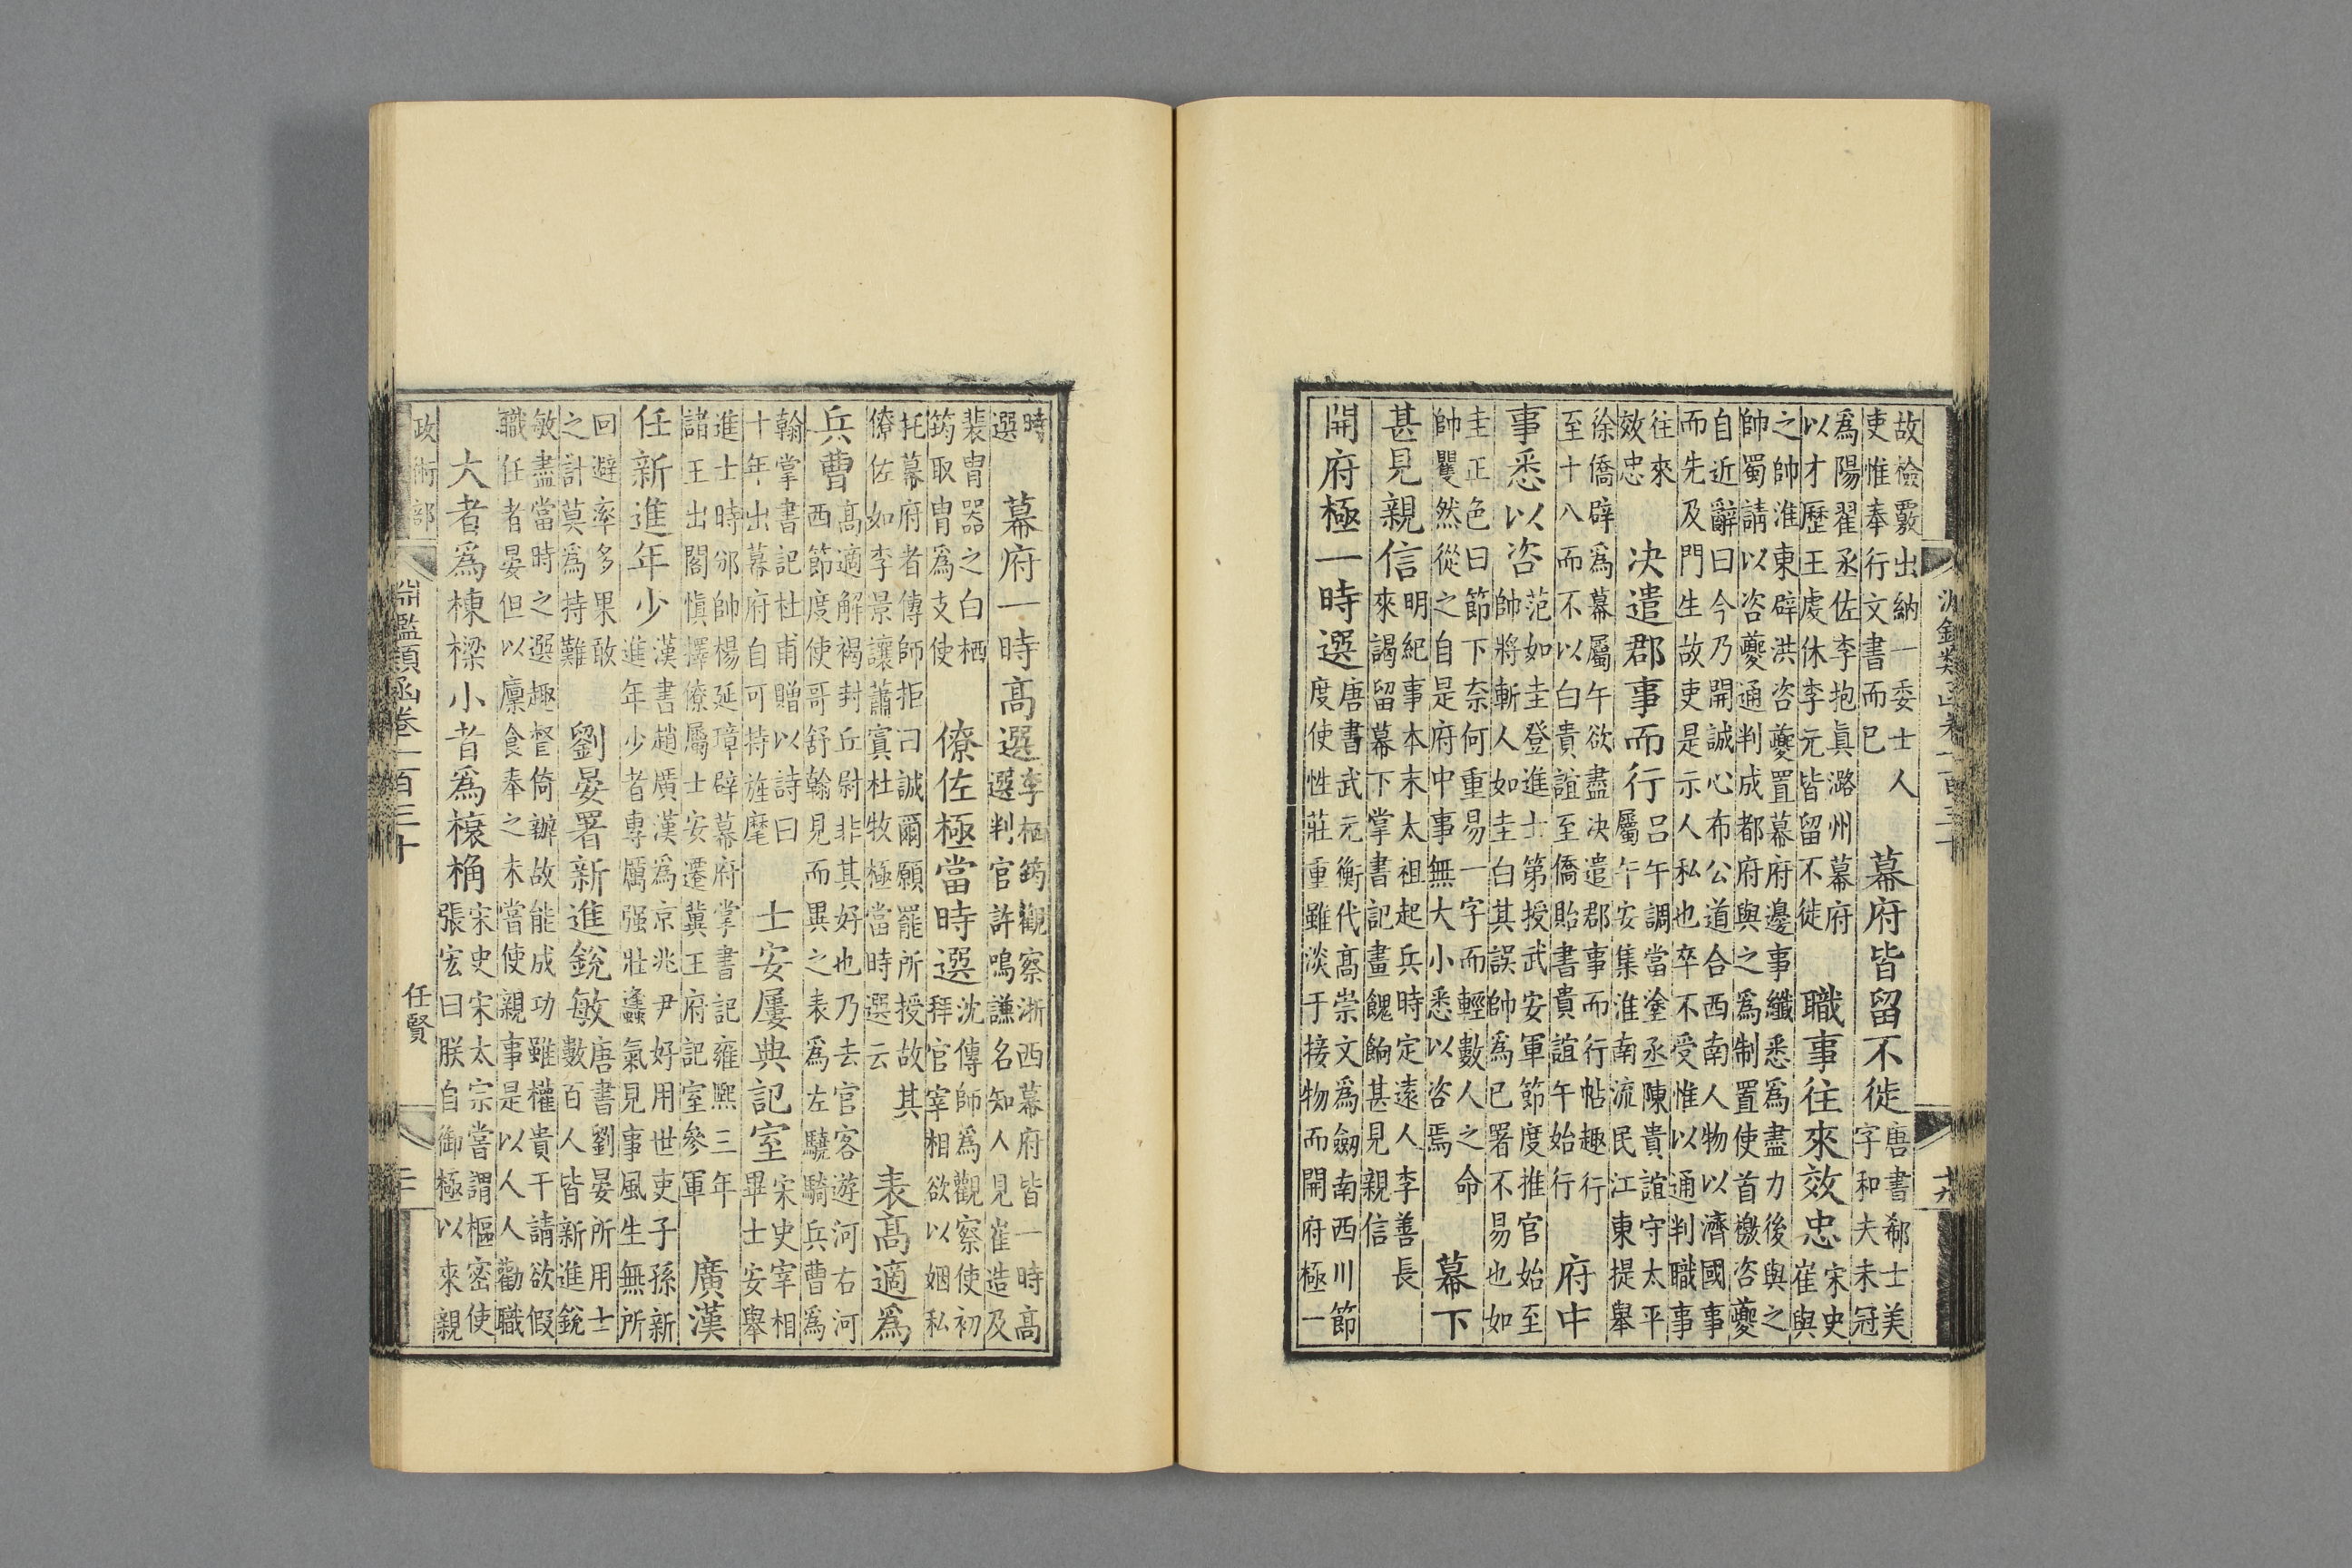 故檢覈出納一委士人
吏惟奉行文書而已
幕府皆留不徙
唐書郗士美
字和夫未冠
爲陽翟丞佐李抱眞潞州幕府
以才歷王虔休李元皆留不徙
職事往來效忠
宋史
崔與
之帥淮東辟洪咨夔置幕府邊事纖悉爲盡力後與之
帥蜀請以咨夔通判成都府與之爲制置使首檄咨夔
自近辭曰今乃開誠心布公道合西南人物以濟國事
而先及門生故吏是示人私也卒不受惟以通判職事
往來
效忠
决遣郡事而行
呂午調當塗丞陳貴誼守太平
屬午安集淮南流民江東提舉
徐僑辟爲幕屬午欲盡决遣郡事而行帖趣行
至十八而不以白貴誼至僑貽書貴誼午始行
府中
事悉以咨
范如圭登進士第授武安軍節度推官始至
帥將斬人如圭白其誤帥爲已署不易也如
圭正色曰節下奈何重易一字而輕數人之命
帥矍然從之自是府中事無大小悉以咨焉
幕下
甚見親信
明紀事本末太祖起兵時定遠人李善長
來謁留幕下掌書記畫餽餉甚見親信
開府極一時選
唐書武元衡代高崇文爲劒南西川節
度使性莊重雖淡于接物而開府極一
時
選
幕府一時高選
李栖筠觀察浙西幕府皆一時高
選判官許鳴謙名知人見崔造及
裴冑器之白栖
筠取冑爲支使
僚佐極當時選
沈傳師爲觀察使初
拜官宰相欲以姻私
托幕府者傳師拒曰誠爾願罷所授故其
僚佐如李景讓蕭寘杜牧極當時選云
表高適爲
兵曹
高適解褐封丘尉非其好也乃去官客遊河右河
西節度使哥舒翰見而異之表爲左驍騎兵曹爲
翰掌書記杜甫贈以詩曰
十年出幕府自可持旌麾
士安屢典記室
宋史宰相
畢士安舉
進士時邠帥楊延璋辟幕府掌書記雍熙三年
諸王出閣愼擇僚屬士安遷冀王府記室參軍
廣漢
任新進年少
漢書趙廣漢爲京兆尹好用世吏子孫新
進年少者專厲强壯蠭氣見事風生無所
回避率多果敢
之計莫爲持難
劉晏署新進銳敏
唐書劉晏所用士
數百人皆新進銳
敏盡當時之選趣督倚辦故能成功雖權貴干請欲假
職任者晏但以廩食奉之未嘗使親事是以人人勸職
大者爲棟樑小者爲榱桷
宋史宋太宗嘗謂樞密使
張宏曰朕自御極以來親
政術部
淵鑑類函卷一百三十
任賢